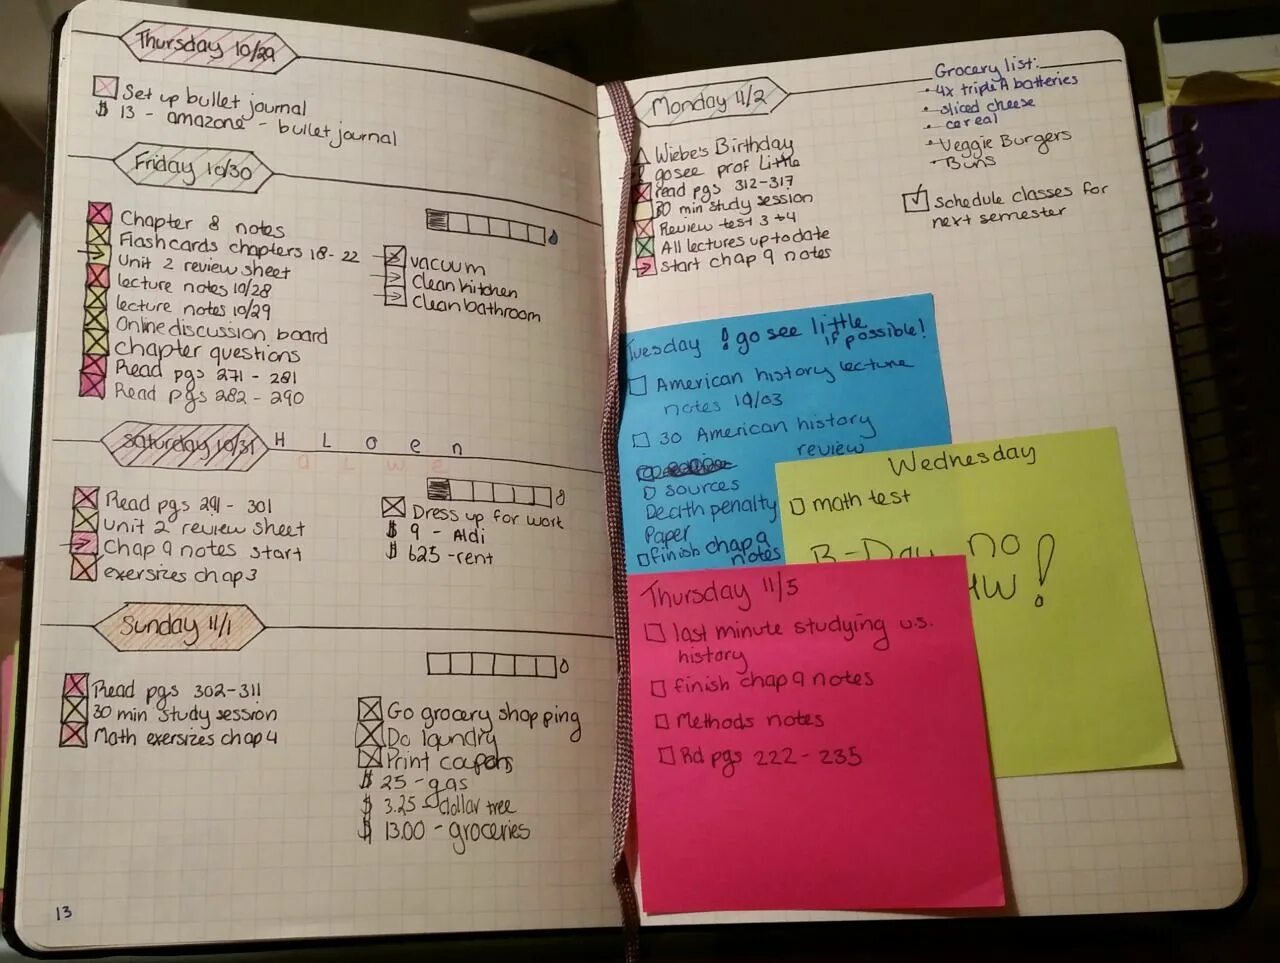 Thursday 10/29
Set up bullet journal
$ 13 - amazone - bullet journal
Friday 10/30
Chapter 8 notes
Flashcards chapters 18-22
Unit 2 review sheet
lecture notes 10/28
lecture notes 10/29
Online discussion board
Chapter questions
Read pgs 271 - 281
Read pgs 282 - 290
vacuum
Clean kitchen
Clean bathroom
Saturday 10/31 H a L L o w e e n
Read pgs 291 - 301
Unit 2 review sheet
Chap 9 notes start
exersizes chap 3
Dress up for work
$ 9 - Aldi
$ 625 - rent
Sunday 11/1
Read pgs 302-311
30 min study session
Math exersizes chap 4
Go grocery shopping
Do laundry
Print coupons
$ 25 - gas
$ 3.25 - dollar tree
$ 13.00 - groceries
13
Monday 11/2
Wiebe's Birthday
go see prof Little
read pgs 312-317
30 min study session
Review test 3 +4
All lectures up to date
Start chap 9 notes
Grocery list:
- 4x triple A batteries
- sliced cheese
- cereal
- Veggie Burgers
- Buns
Schedule classes for
next semester
Tuesday ! go see little
if possible!
American history lecture
notes 19/03
30 American history
review
sources
Death penalty
Paper
finish chap 9
notes
Wednesday
math test
B-Day no
HW!
Thursday 11/5
last minute studying u.s.
history
finish chap 9 notes
Methods notes
Rd pgs 222 - 235